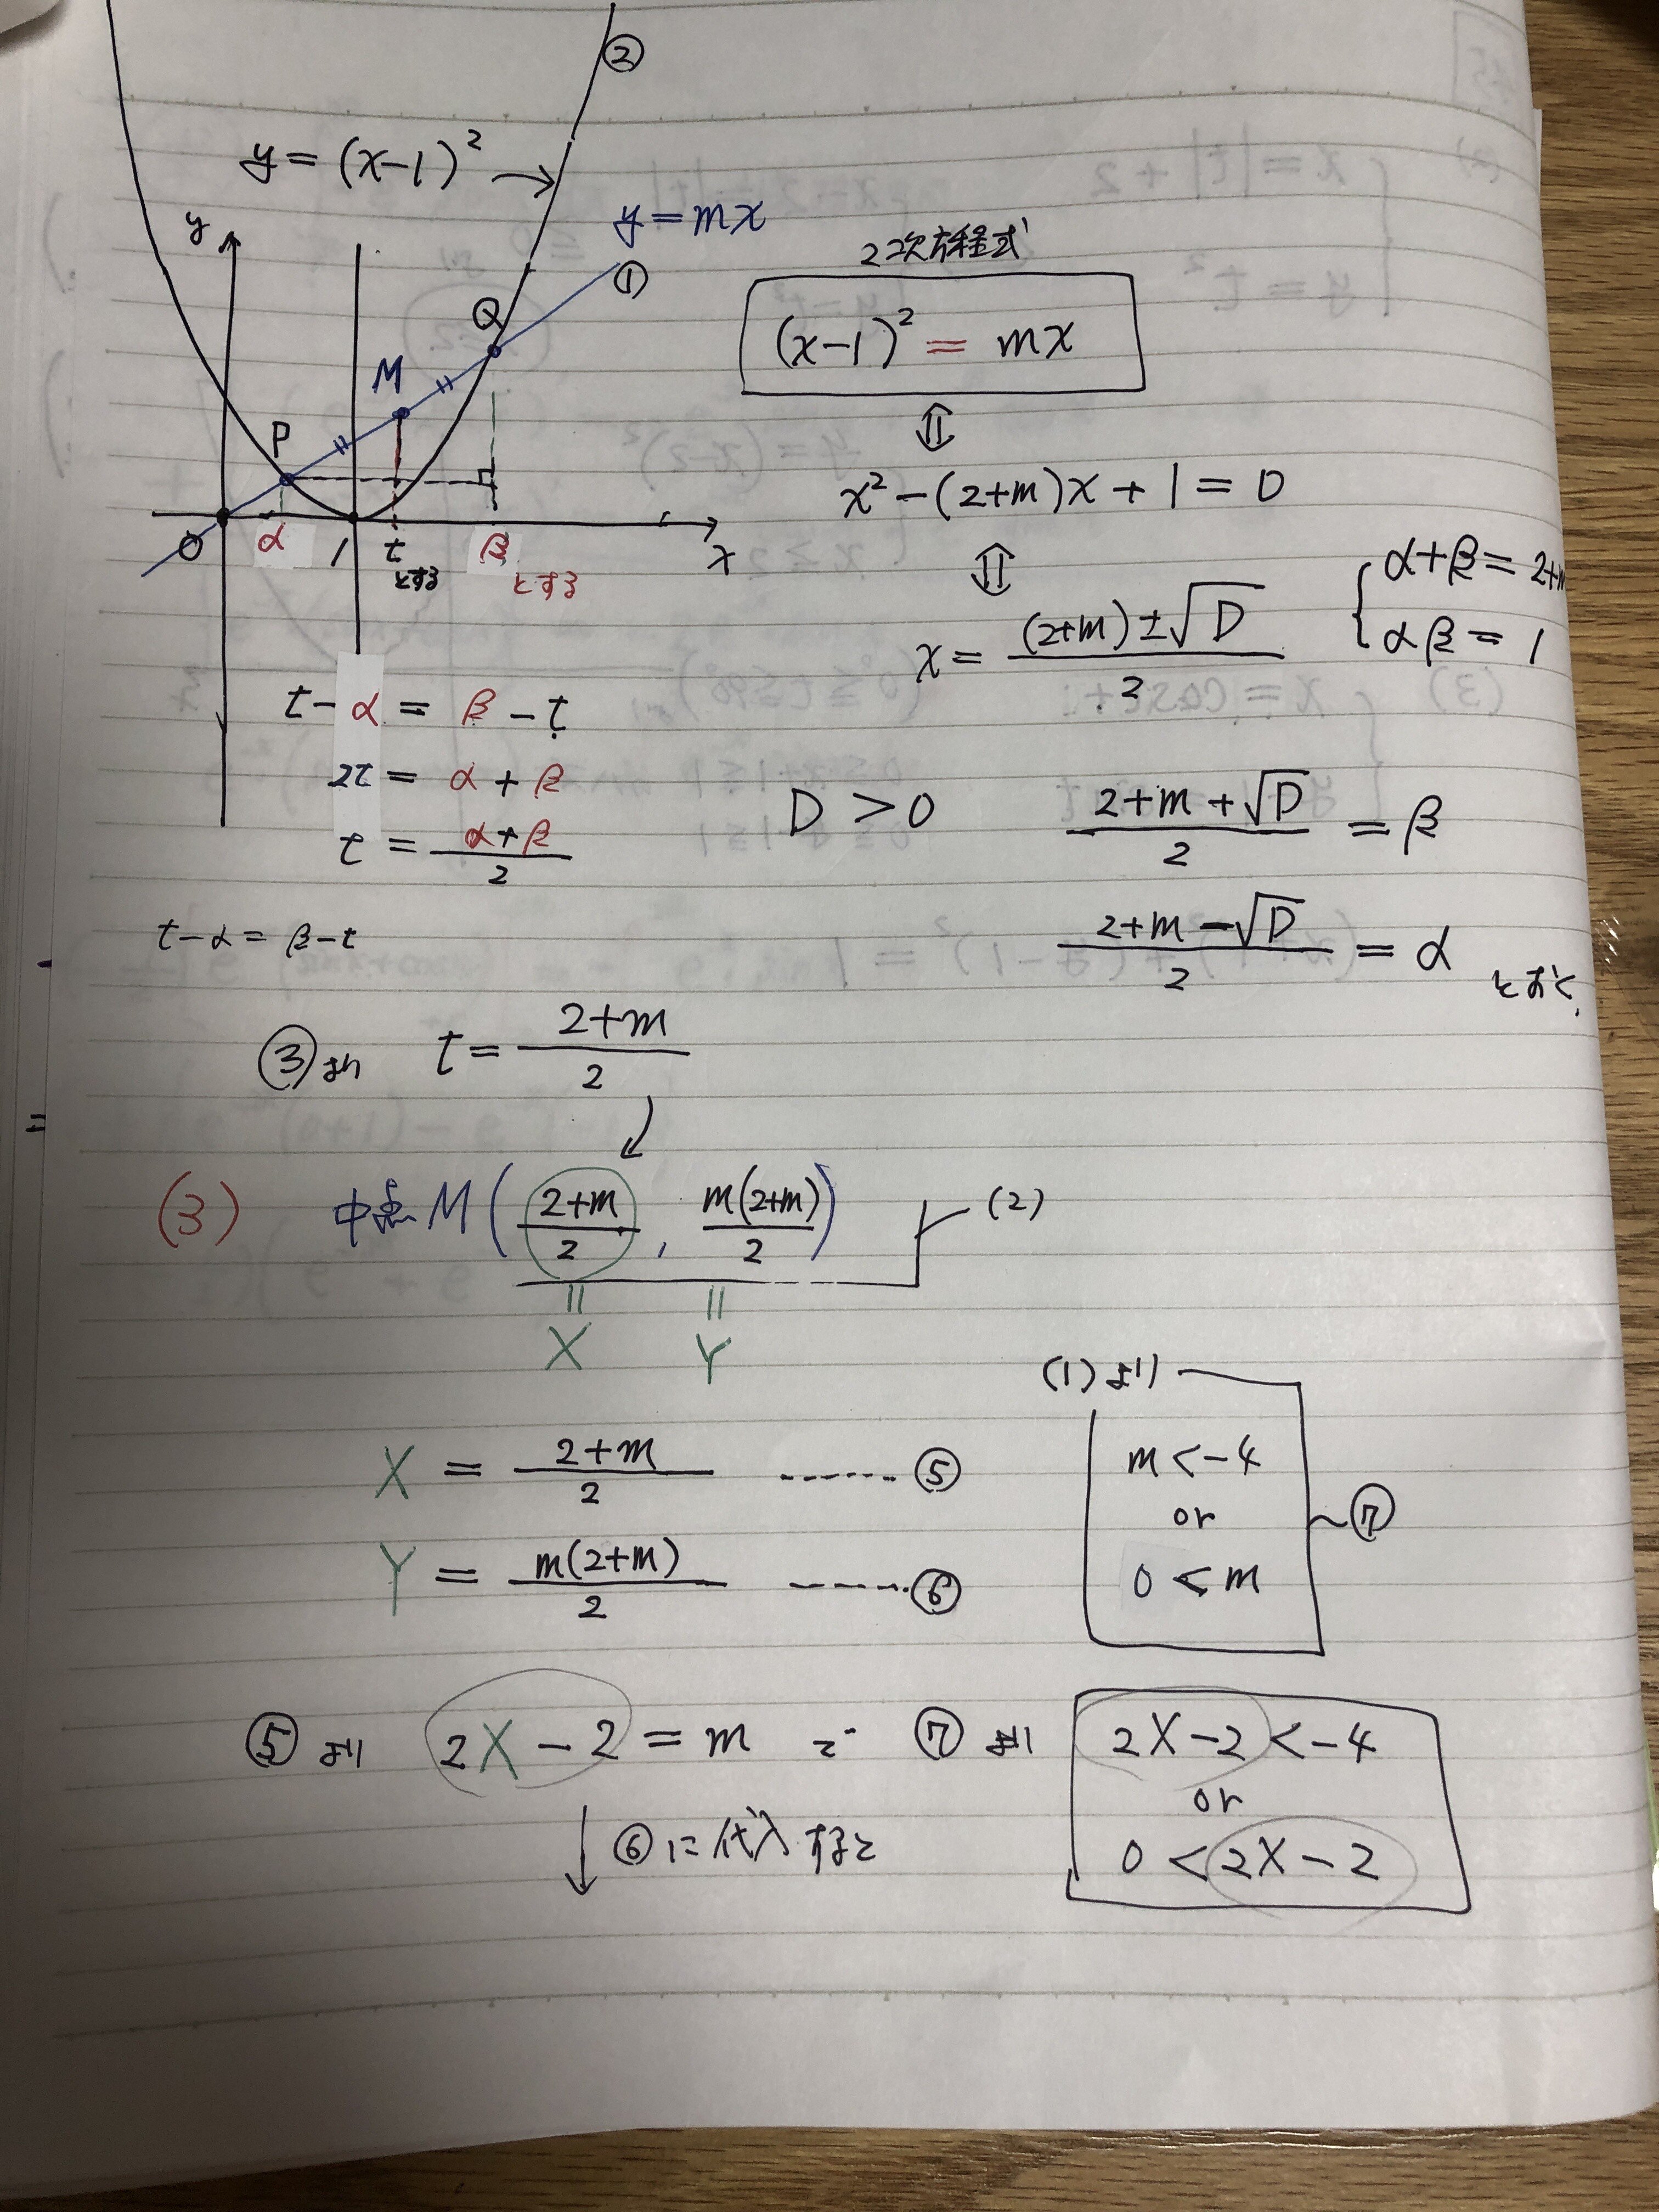 ②
y = (x-1)²
y = mx
①
y
Q
M
P
O
α
1
t
とする
β
とする
x
2次方程式
(x-1)² = mx
⇕
x² - (2+m)x + 1 = 0
⇕
x = ((2+m) ± √D)/2
α+β = 2+m
αβ = 1
t - α = β - t
2t = α + β
t = (α+β)/2
D > 0
(2+m+√D)/2 = β
(2+m-√D)/2 = α
とおく
t-α = β-t
③より t = (2+m)/2
(3) 中点M((2+m)/2, m(2+m)/2) (2)
= =
X Y
(1)より
m < -4
or
0 < m
⑦
X = (2+m)/2 ------- ⑤
Y = m(2+m)/2 ------- ⑥
⑤より 2X - 2 = m で ⑦より
2X-2 < -4
or
0 < 2X-2
↓ ⑥に代入すると